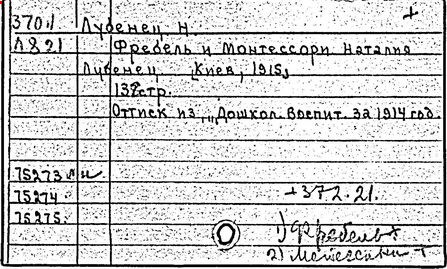 +
370.1 Лубенец, Н.
Л821 Фребель и Монтессори Наталия
Лубенец Киев, 1915,
132стр.
Оттиск из „Дошкол. Воспит. за 1914 год.
75273
75274 +372.21.
75275. 1) Фребель +
2) Монтессори +